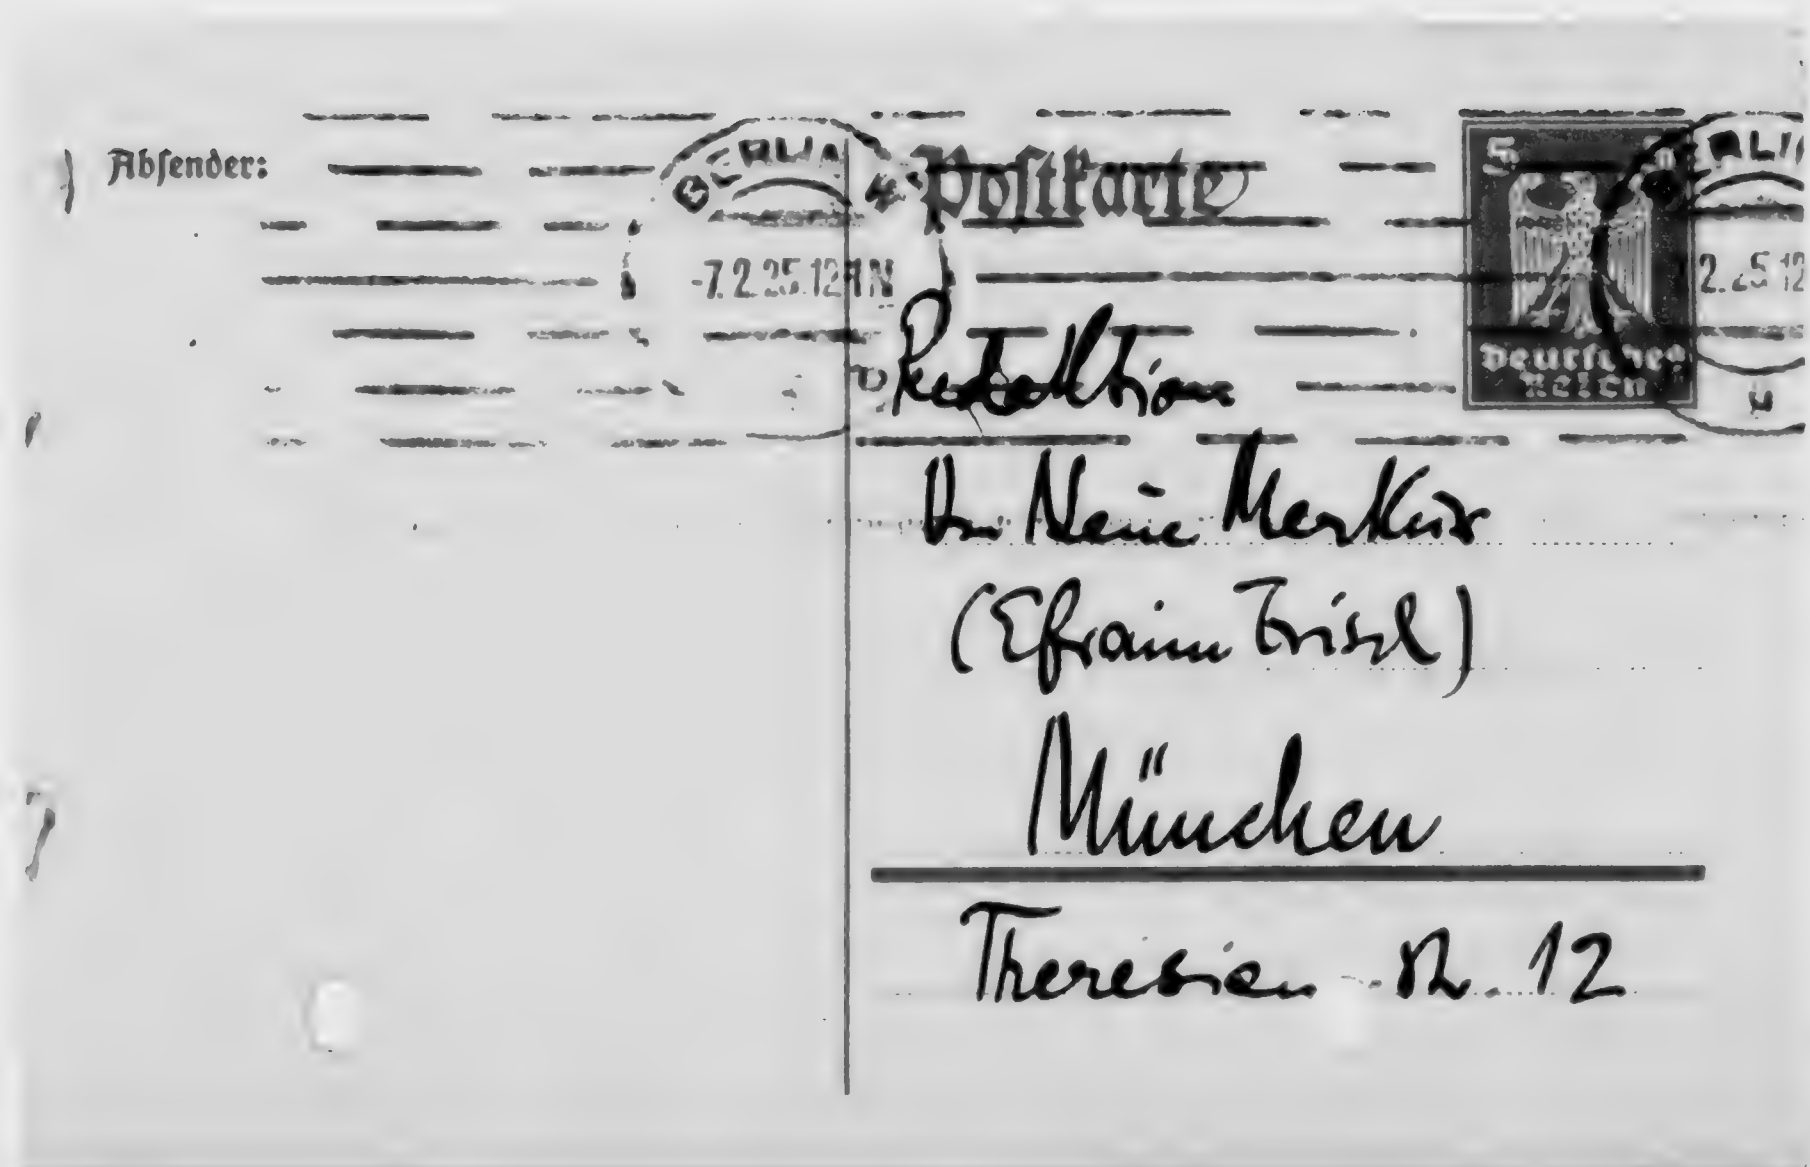 Absender:
Postkarte
BERLIN
-7.2.25.12-1N
5
Deutsches
Reich
ERLIN
2.25 12
Redaktion
Der Neue Merkur
(Efraim Frisch)
München
Theresien - Str. 12